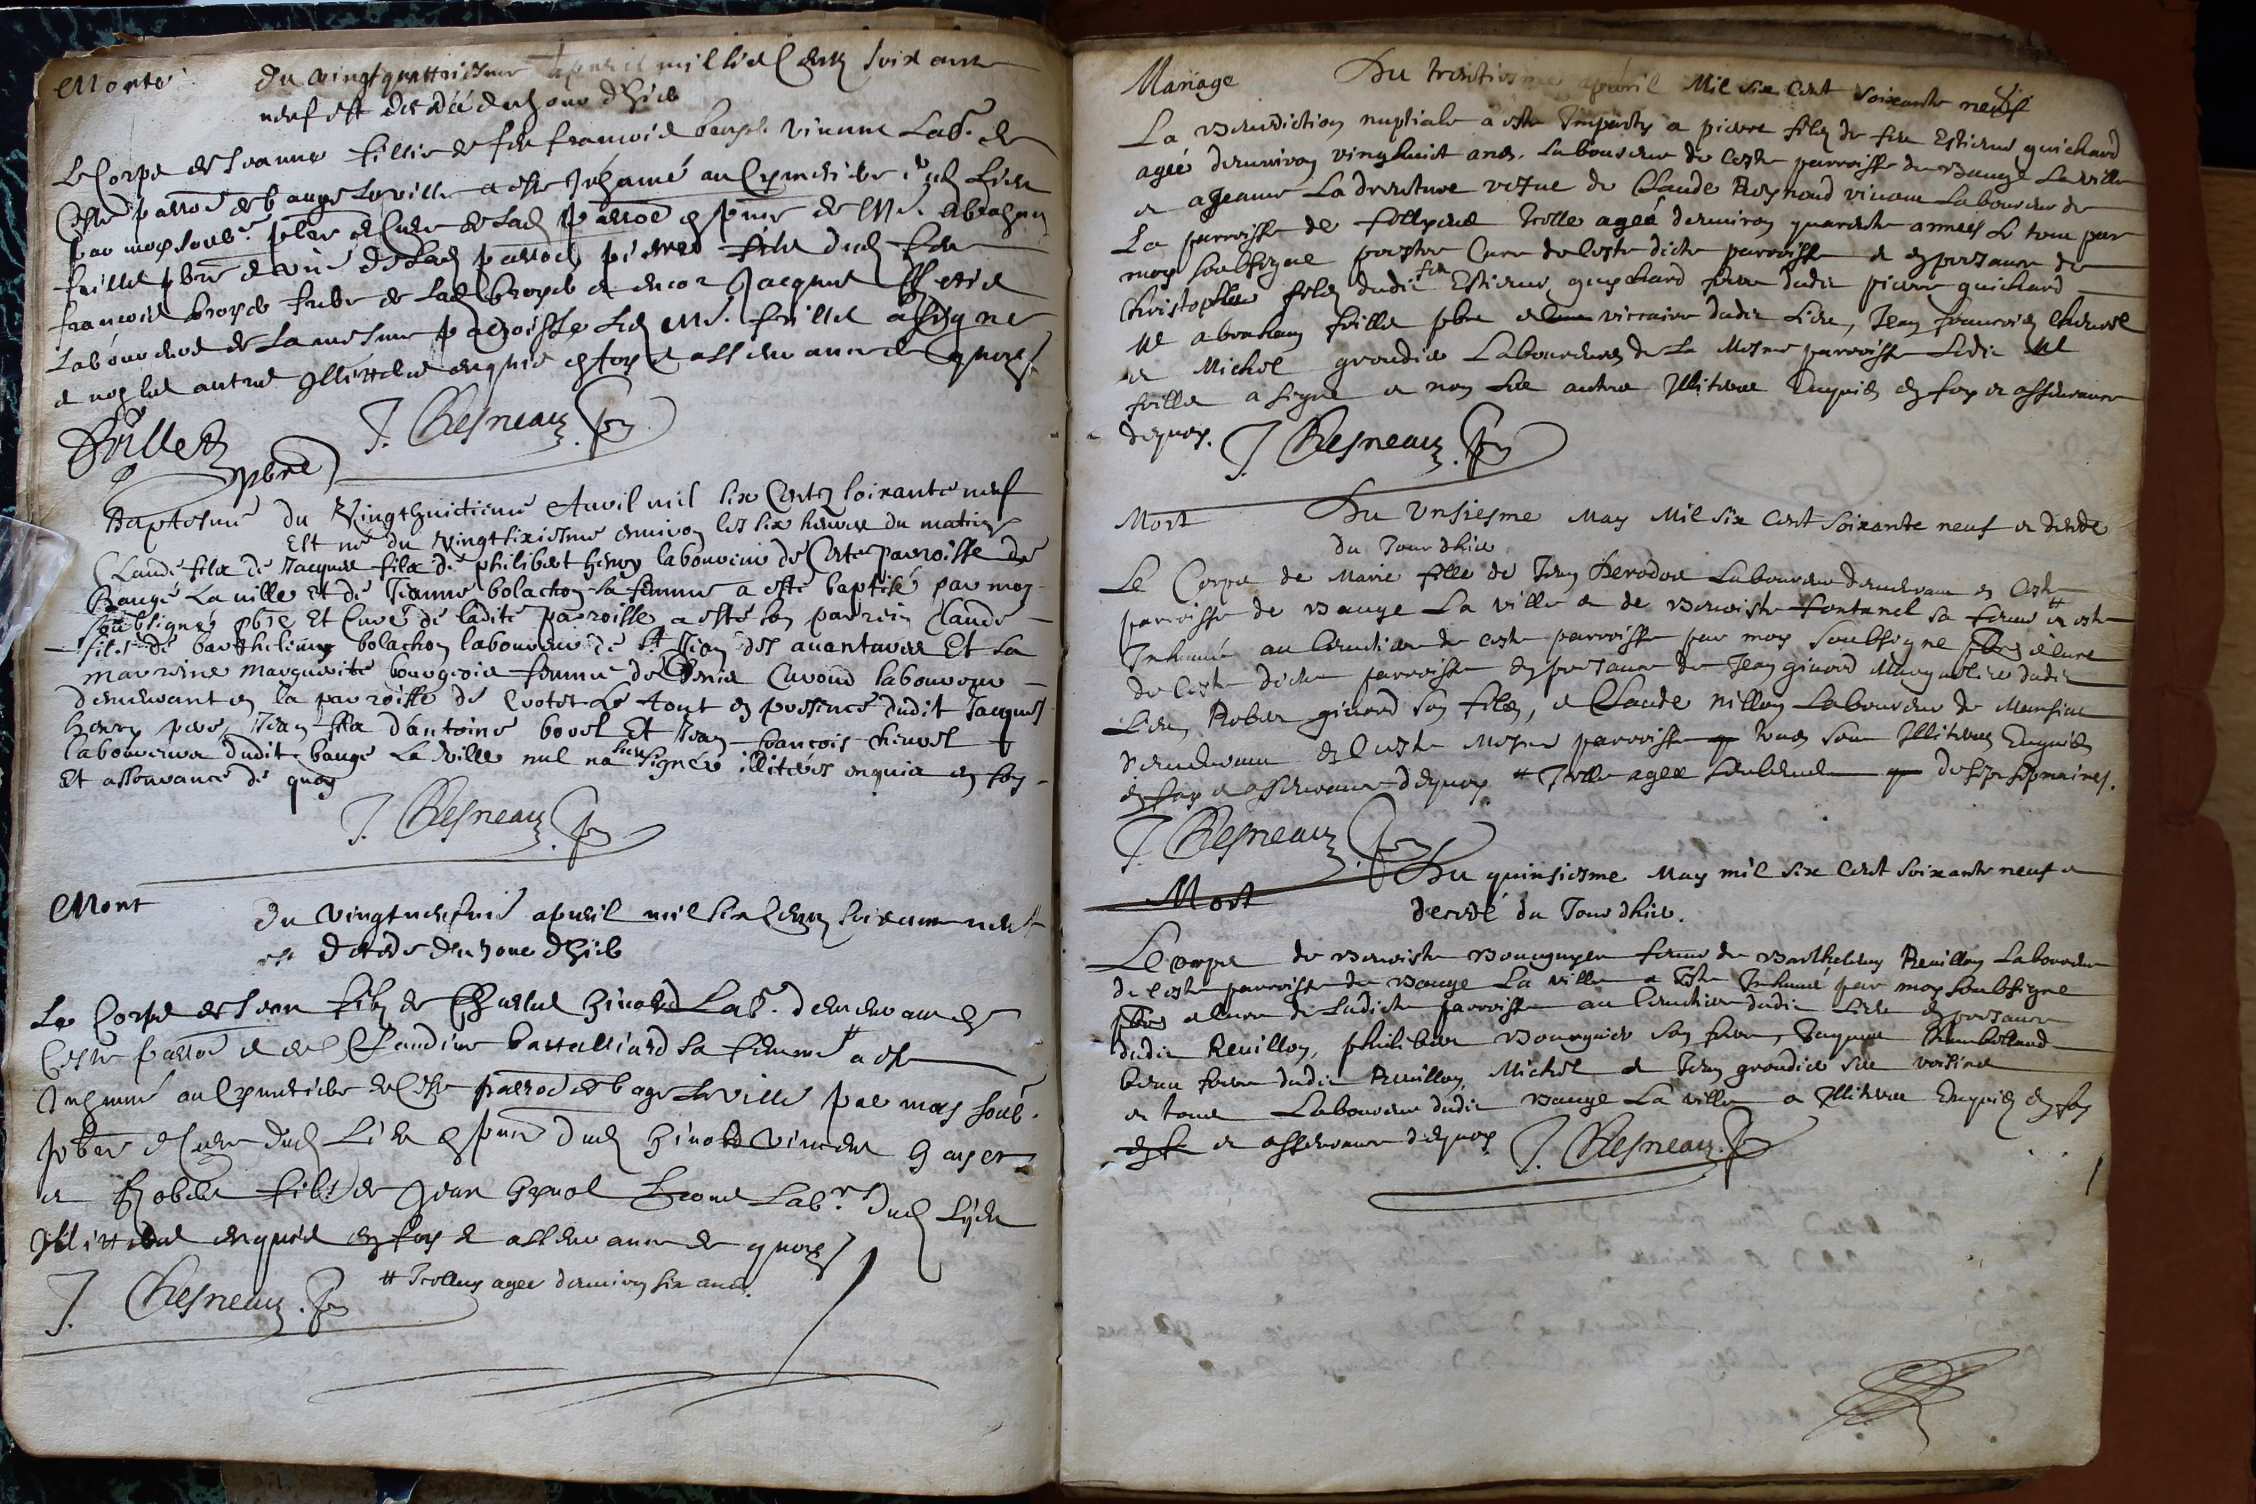 Morte
du vingtquattriesme apvril mil six Centz soixante
neuf est decedé du jour d'hier
Le Corps de Jeanne fillie de feu francois vivant Labr. de
Ceste parroe de bauge la ville a esté Inhumé au Cymetiere dud Lieu
par moy soubs. pbre et Curé de lad parroe en pnce de Mre. Abraham
frillet pbre et vic de lad parroe, pierre filz dud feu
francois frere de lad et encor Jacques
Laboureurs de La mesme parroisse led Mre. frillet a signe
et non les autres Illitteres enquis en foy et asseurance de quoy
Frillet pbre
J. Chesneau
Baptesme du Vingthuictieme Avril mil six Centz soixante neuf
Est né du vingtsixiesme environ les six heures du matin
Claude filz de Jacques filz de philibert henry laboureur de Ceste parroisse de
Baugé La ville et de Jeanne bolachon sa femme a esté baptisé par moy
soubsigné pbre Et Curé de ladite parroisse a esté son parrein Claude
filz de barthelemy bolachon laboureur de St Jean des avantures Et sa
marreine Marguerite bourgeois femme de Denis Cavoud laboureur
demeurant en la parroisse de Crotet Le tout en presence dudit Jacques
henry pere, Jean filz d'antoine bovet Et Jean francois chevrel
laboureurs dudit baugé La ville nul na signé illiterés enquis en foy
Et asseurance de quoy
J. Chesneau
Mort
du vingtneufvie apvril mil six Centz soixante neuf
est decedé du jour d'hier
Le Corps de Jean filz de Charles ginord Labr. demeurant en
Ceste parroe et de Claudine battalliard sa femme # a esté
Inhumé au Cymetiere de Ceste parroe de bage la ville par moy soubs.
pbre et Curé dud Lieu en pnce dud ginord vincent
et Robert filz de Jean Labrs. dud Lieu
Illitteres enquis en foy et asseurance de quoy
J. Chesneau
# Icelluy agee d'environ six ans.
Mariage
Du trentiesme apvril Mil six Cent soixante neuf
La Benediction nuptiale a esté Impartis a pierre filz de feu Estienne guichard
agée d'environ vingthuict ans. laboureur de Ceste parroisse de Baugé La ville
et a Jeanne Ladventure vefve de Claude Reynaud vivant Laboureur de
La parroisse de Icelle ageé d'environ quarante années Le tout par
moy soubsigné prestre Curé de Ceste dicte parroisse et en presance de
Christophle filz dudit feu Estienne guichard frere dudit pierre guichard
Me abraham frillet pbre et viccaire dudit Lieu, Jean francois Chevrel
et Michel grondier Laboureurs de La Mesme parroisse Ledit Me
frillet a signe et non Les autres Illiteres Enquis en foy et asseurance
dequoy. J. Chesneau
Mort
Du Unsiesme May Mil six Cent Soixante neuf et decedé
du Jour dhier
Le Corps de Marie fille de Jean Laboureur demeurant en Ceste
parroisse de Bauge La ville et de Benoiste fontanel sa femme # a esté
Inhumé au Cimetiere de Ceste parroisse par moy soubsigne pbre et Curé
de Ceste dicte parroisse en presance de Jean ginord Marguelier dudit
Lieu, Robert ginord son filz, et Claude nillon Laboureur de
demeurant en Ceste Mesme parroisse tous sont Illiteres Enquis
en foy et asseurance dequoy # Icelle agee seulement de six sepmaines.
J. Chesneau
Mort
Du quinsiesme May mil six Cent soixante neuf et
decedé du Jour dhier.
Le Corps de Benoiste Bourguyer femme de Barthelemy Revillon Laboureur
de Ceste parroisse de Bauge La ville a Esté Inhumé par moy soubsigné
pbre et Curé de Ladicte parroisse au Cimetiere dudit Lieu en presance
dudit Revillon, philibert Bourguier son frere, Jacques
beau frere dudit Revillon, Michel et Jean grondier ses voisins
et tous Laboureurs dudit Bauge La ville Illiteres Enquis en foy
et asseurance dequoy J. Chesneau